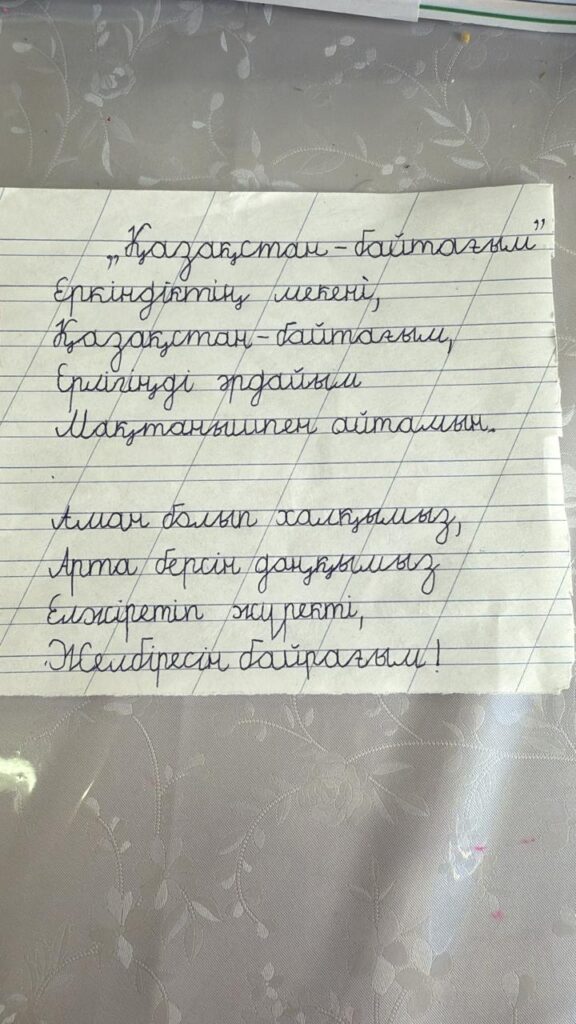 „Қазақстан - байтағым”
Еркіндіктің мекені,
Қазақстан - байтағым,
Ерлігіңді әрдайым
Мақтанышпен айтамын.
Аман болып халқымыз,
Арта берсін даңқымыз
Елжіретіп жүректі,
Желбіресін байрағым!